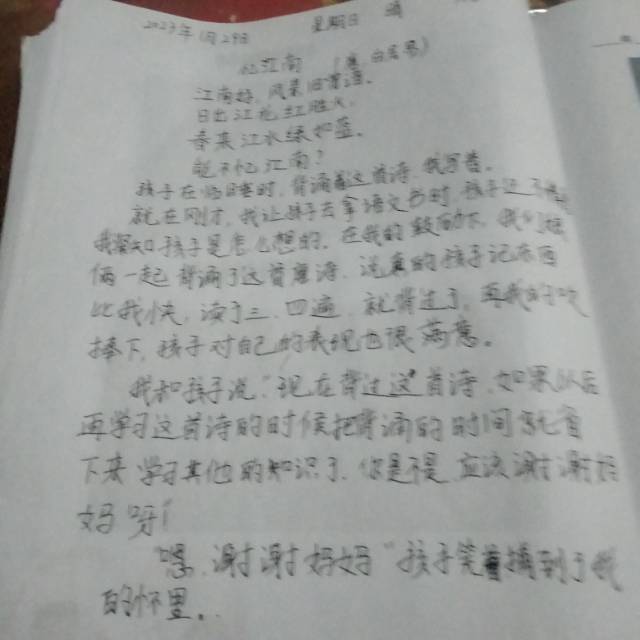 2023年1月29日 星期日 晴
忆江南 (唐 白居易)
江南好,风景旧曾谙。
日出江花红胜火,
春来江水绿如蓝。
能不忆江南?
孩子在临睡时,背诵着这首诗 我写着。
就在刚才,我让孩子去拿语文书时,孩子
我深知孩子是怎么想的,在我的鼓励下,我们娘
俩一起背诵了这首唐诗,说真的孩子记东西
比我快,读了三、四遍,就背过了,在我的夸
捧下,孩子对自己的表现也很满意。
我和孩子说"现在背过这首诗,如果以后
再学习这首诗的时候把背诵的时间就省
下来学习其他的知识了,你是不是,应该谢谢妈
妈呀!
嗯,谢谢妈妈"孩子笑着搂到了我
的怀里。